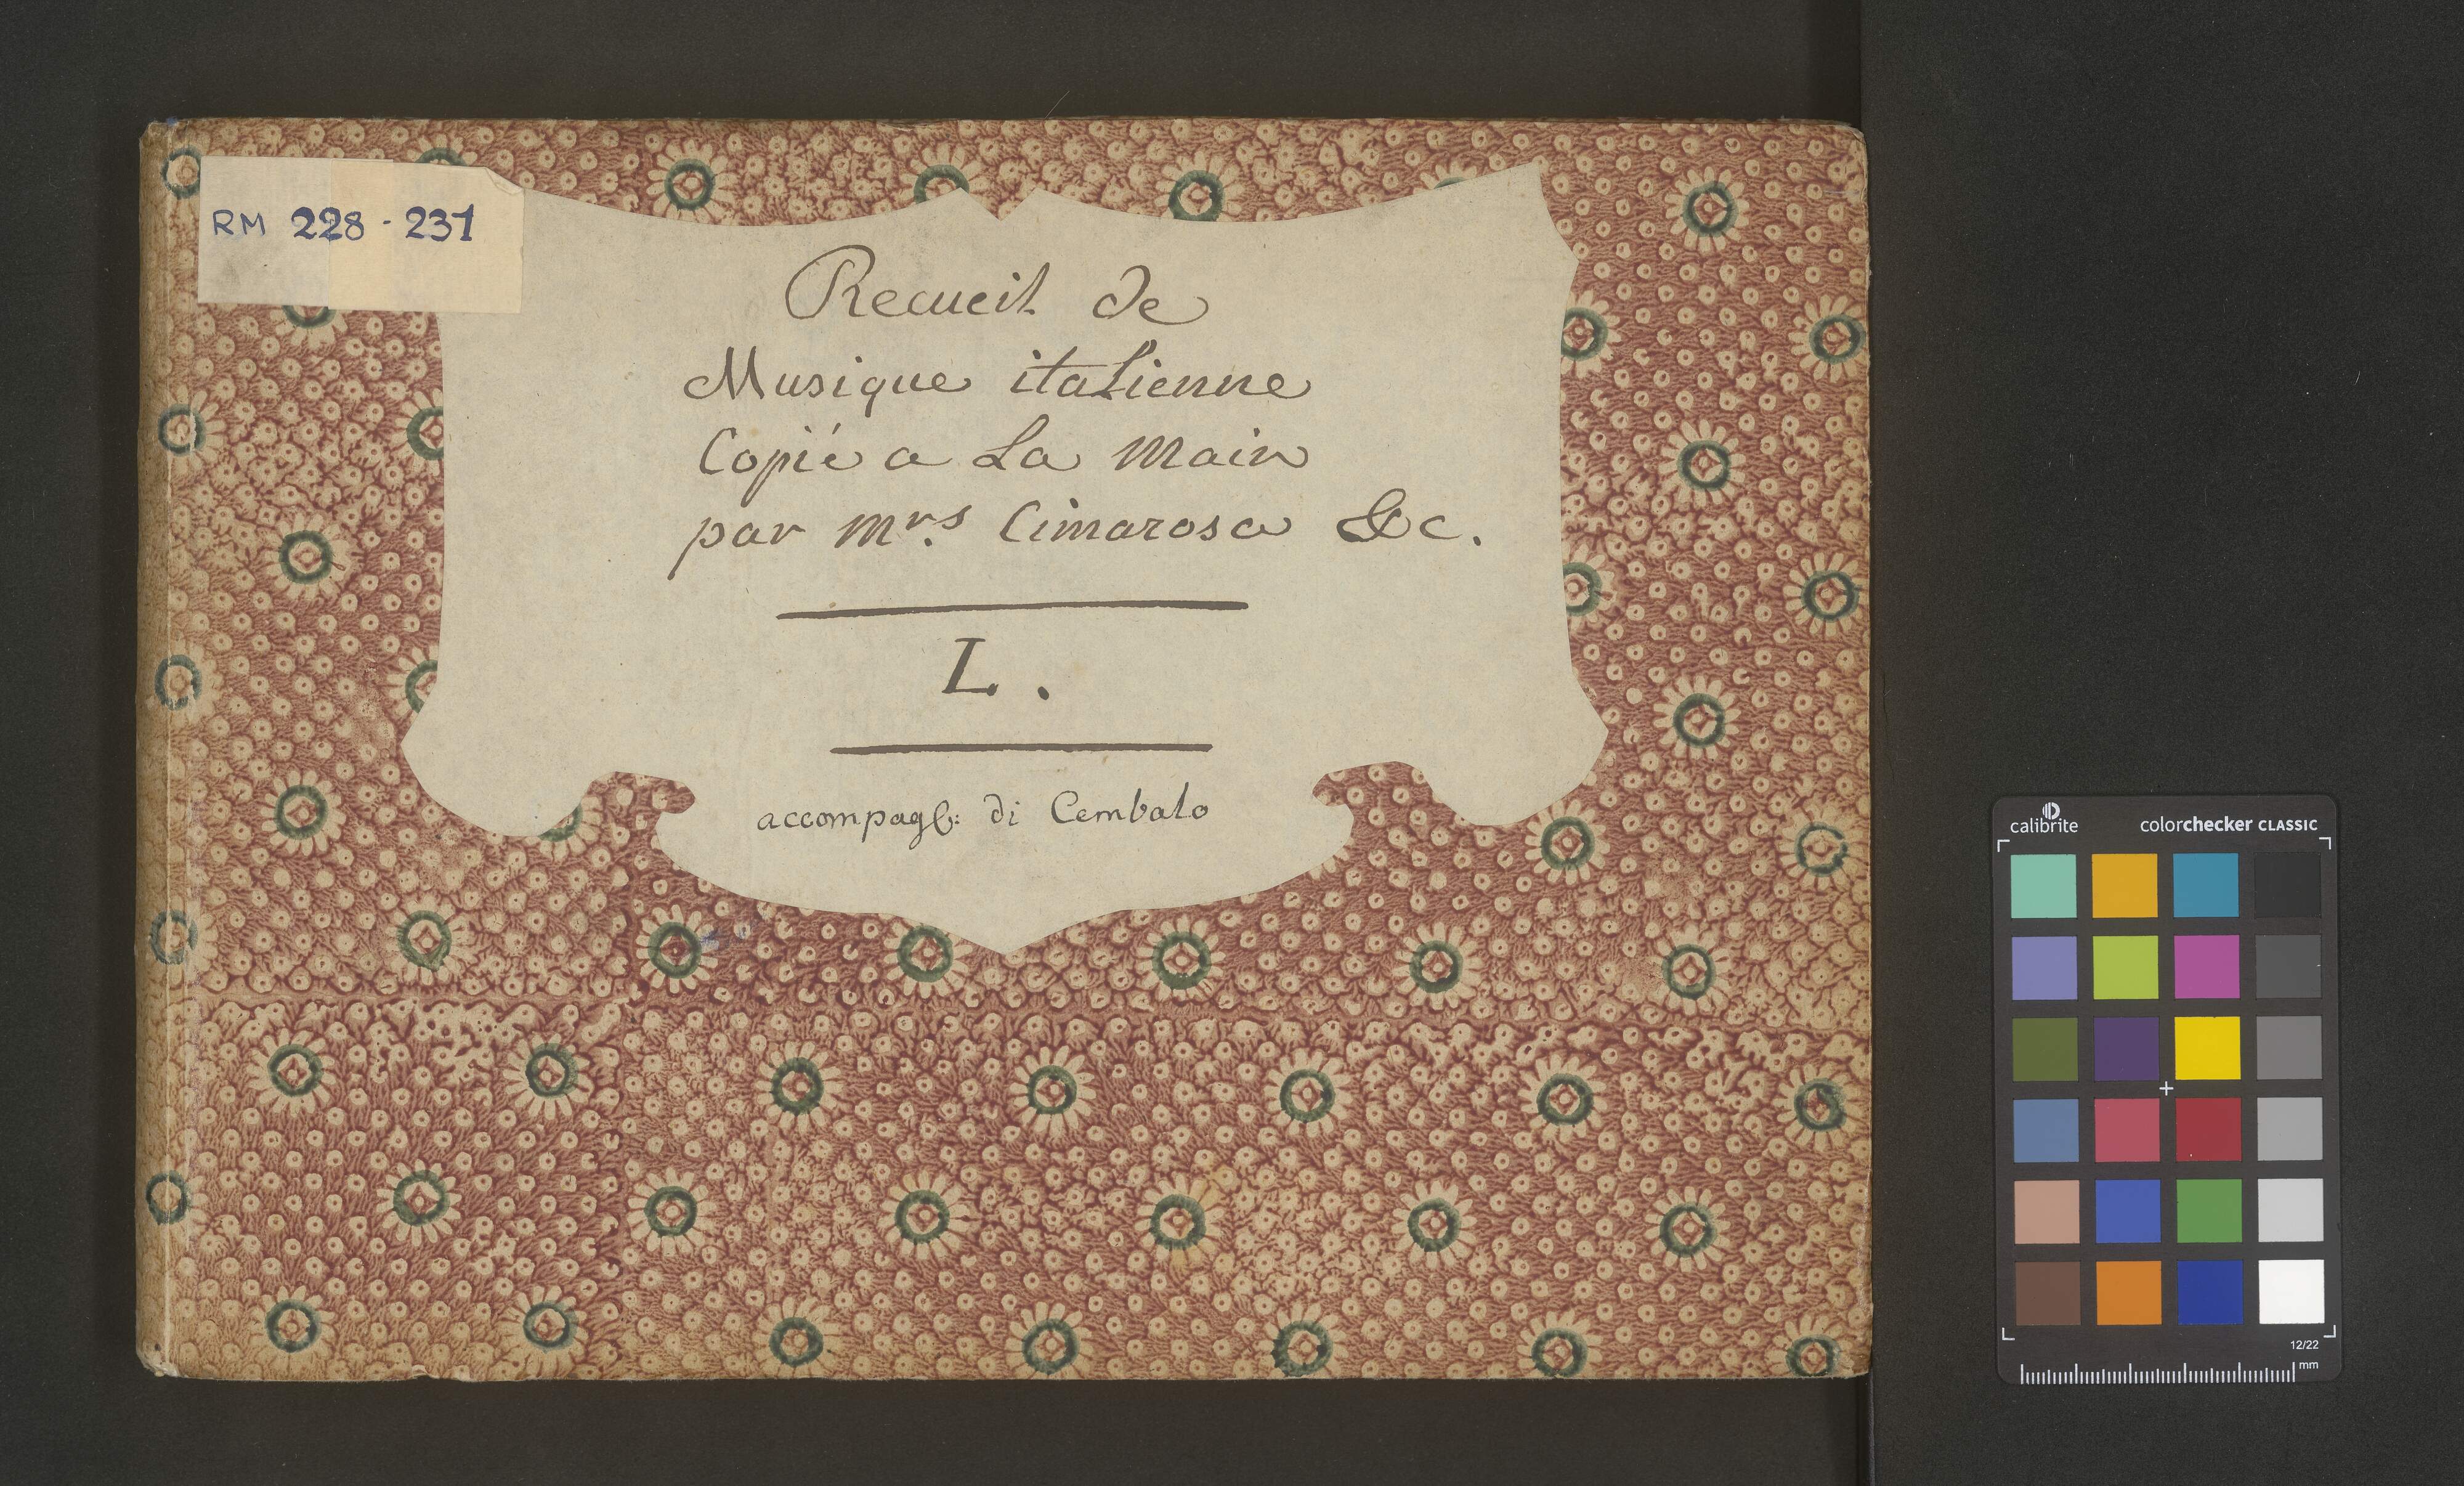 RM 228-231
Recueil de
Musique italienne
Copié a La Main
par Mrs. Cimarosa &c.
L.
accompagt: di Cembalo
calibrite
colorchecker CLASSIC
12/22
mm